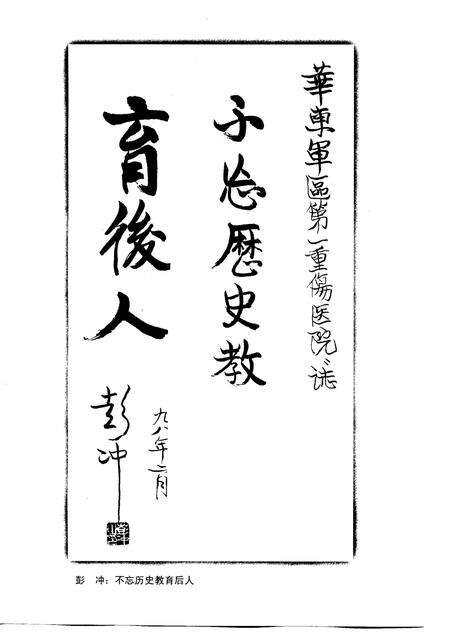 華東軍區第一重傷医院誌
不忘歷史教
育後人
九八年二月
彭冲
彭　冲：不忘历史教育后人